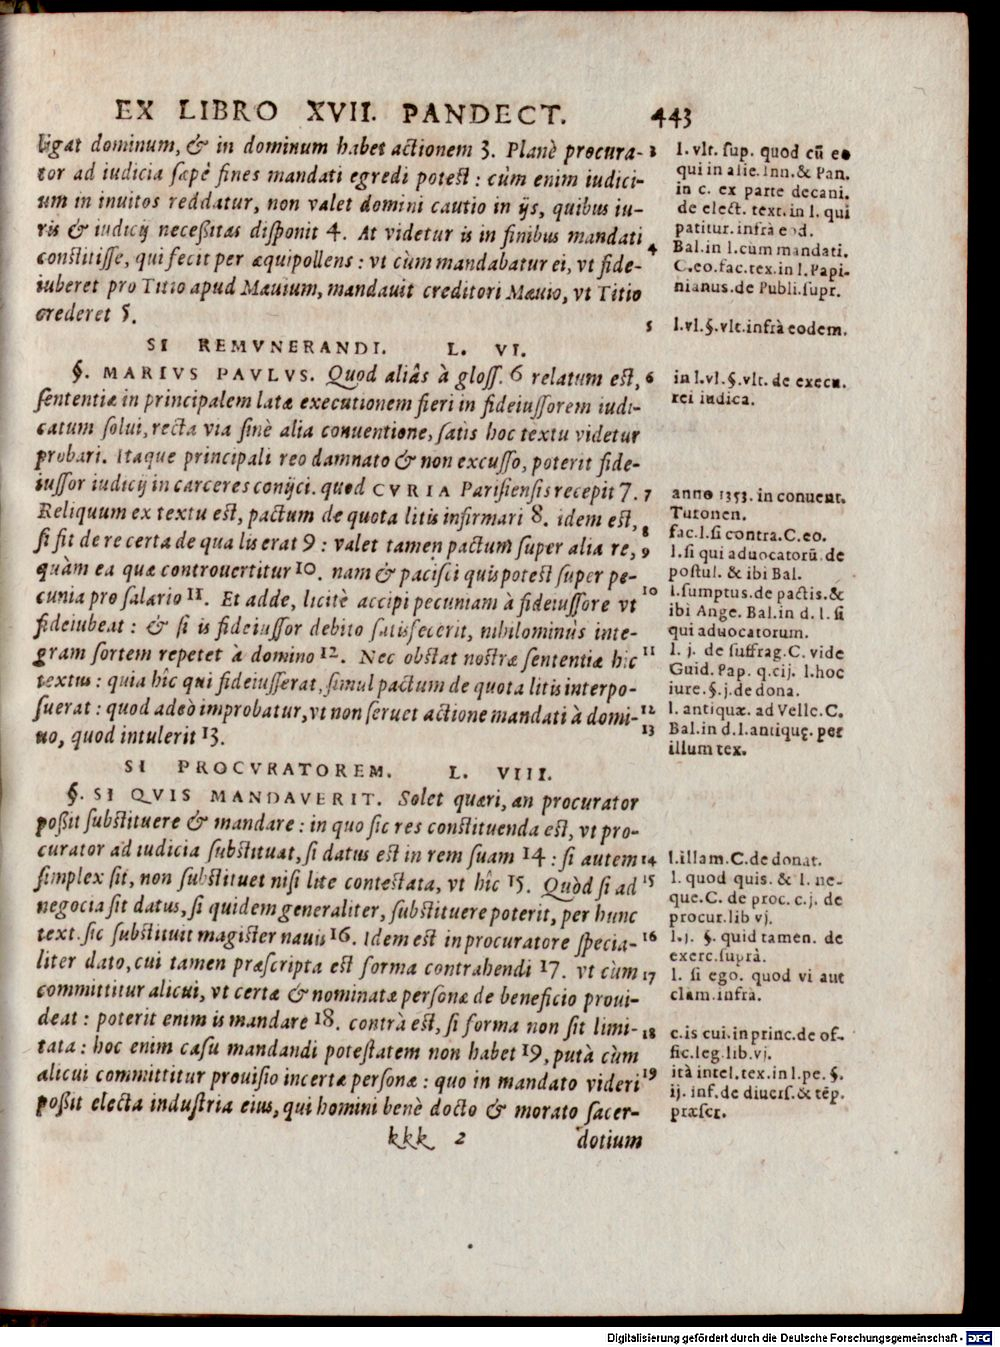 EX LIBRO XVII. PANDECT. 443
ligat dominum, & in dominum habet actionem 3. Planè procura-
tor ad iudicia sæpè fines mandati egredi potest: cùm enim iudici-
um in inuitos reddatur, non valet domini cautio in ijs, quibus iu-
ris & iudicij neceßitas disponit 4. At videtur is in finibus mandati
constitisse, qui fecit per æquipollens: vt cùm mandabatur ei, vt fide-
iuberet pro Titio apud Mæuium, mandauit creditori Mæuio, vt Titio
crederet 5.
SI REMVNERANDI. L. VI.
§. MARIVS PAVLVS. Quod aliâs à gloss. 6 relatum est,
sententiæ in principalem latæ executionem fieri in fideiussorem iudi-
catum solui, recta via sinè alia conuentione, satis hoc textu videtur
probari. Itaque principali reo damnato & non excusso, poterit fide-
iussor iudicij in carceres conijci. quod CVRIA Parisiensis recepit 7.
Reliquum ex textu est, pactum de quota litis infirmari 8. idem est,
si sit de re certa de qua lis erat 9: valet tamen pactum super alia re,
quàm ea quæ controuertitur 10. nam & pacisci quis potest super pe-
cunia pro salario 11. Et adde, licitè accipi pecuniam à fideiussore vt
fideiubeat: & si is fideiussor debito satisfecerit, nihilominùs inte-
gram sortem repetet à domino 12. Nec obstat nostræ sententiæ hic
textus: quia hîc qui fideiusserat, simul pactum de quota litis interpo-
suerat: quod adeò improbatur, vt non seruet actione mandati à domi-
no, quod intulerit 13.
SI PROCVRATOREM. L. VIII.
§. SI QVIS MANDAVERIT. Solet quæri, an procurator
poßit substituere & mandare: in quo sic res constituenda est, vt pro-
curator ad iudicia substituat, si datus est in rem suam 14: si autem
simplex sit, non substituet nisi lite contestata, vt hîc 15. Quòd si ad
negocia sit datus, si quidem generaliter, substituere poterit, per hunc
text. sic substituit magister nauis 16. Idem est in procuratore specia-
liter dato, cui tamen præscripta est forma contrahendi 17. vt cùm
committitur alicui, vt certæ & nominatæ personæ de beneficio proui-
deat: poterit enim is mandare 18. contrà est, si forma non sit limi-
tata: hoc enim casu mandandi potestatem non habet 19, putà cùm
alicui committitur prouisio incertæ personæ: quo in mandato videri
poßit electa industria eius, qui homini benè docto & morato sacer-
kkk 2 dotium
3 l. vlt. sup. quod cũ eo
qui in alie. Inn. & Pan.
in c. ex parte decani.
de elect. text. in l. qui
patitur. infrà eod.
4 Bal. in l. cùm mandati.
C. eo. fac. tex. in l. Papi-
nianus. de Publi. supr.
5 l. vl. §. vlt. infrà eodem.
6 in l. vl. §. vlt. de execu.
rei iudica.
7 anno 1353. in conuent.
Turonen.
8 fac. l. si contra. C. eo.
9 l. si qui aduocatorũ. de
postul. & ibi Bal.
10 l. sumptus. de pactis. &
ibi Ange. Bal. in d. l. si
qui aduocatorum.
11 l. j. de suffrag. C. vide
Guid. Pap. q. cij. l. hoc
iure. §. j. de dona.
12 l. antiquæ. ad Velle. C.
13 Bal. in d. l. antiquę. per
illum tex.
14 l. illam. C. de donat.
15 l. quod quis. & l. ne-
que. C. de proc. c. j. de
procur. lib vj.
16 l. j. §. quid tamen. de
exerc. suprà.
17 l. si ego. quod vi aut
clam. infrà.
18 c. is cui. in princ. de of-
fic. leg. lib. vj.
19 ità intel. tex. in l. pe. §.
ij. inf. de diuers. & tẽp.
præscr.
Digitalisierung gefördert durch die Deutsche Forschungsgemeinschaft - DFG